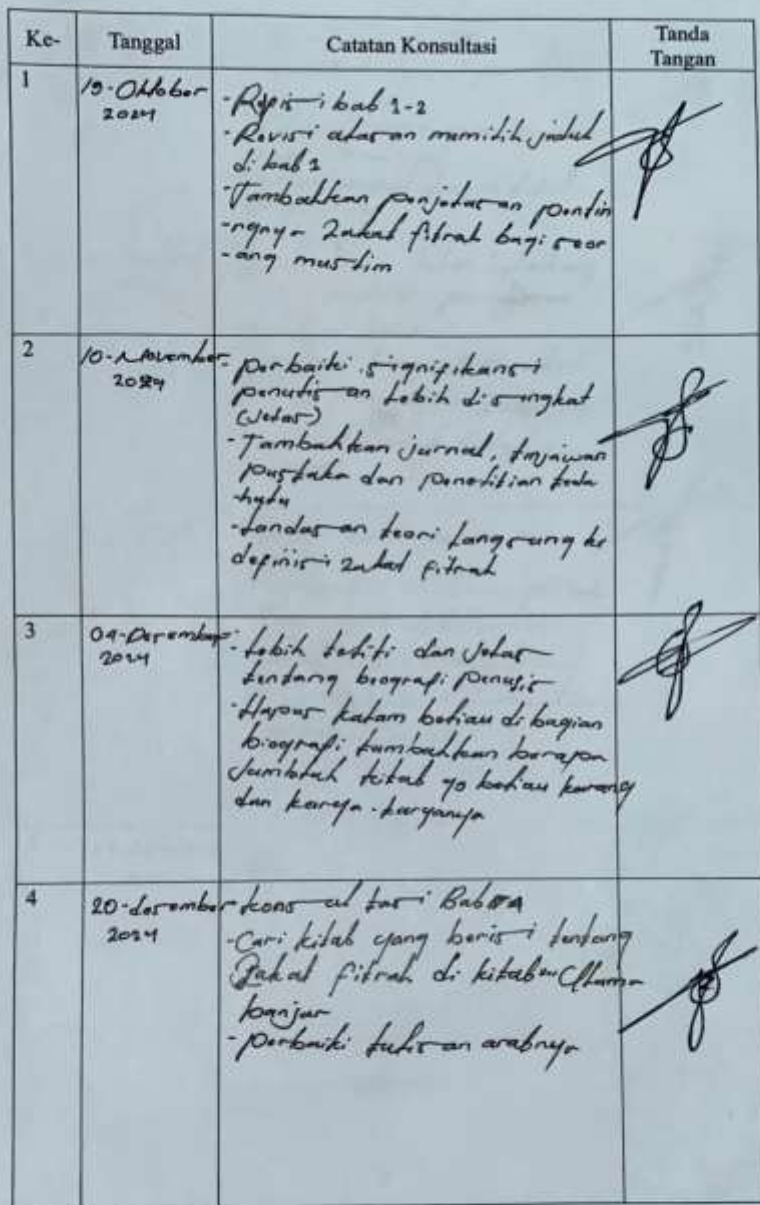 Ke-
Tanggal
Catatan Konsultasi
Tanda
Tangan
1
19-Oktober
2024
- Revisi bab 1-2
- Revisi alasan memilih judul
di bab 1
- Tambahkan penjelasan pentin
-ngnya zakat fitrah bagi seor
-ang muslim
2
10-November
2024
- perbaiki signifikansi
penulisan lebih disingkat
(Jelas)
- Tambahkan jurnal, tinjauan
pustaka dan penelitian
- Landasan teori langsung ke
definisi zakat fitrah
3
04-Desember
2024
- Lebih teliti dan jelas
tentang biografi penulis
- Hapus kalam beliau di bagian
biografi tambahkan berapa
Jumblah kitab yg beliau karang
dan karya-karyanya
4
20-desember
2024
konsultasi Bab 4
- Cari kitab yang berisi tentang
Zakat fitrah di kitab" Ulama
banjar
- perbaiki tulisan arabnya